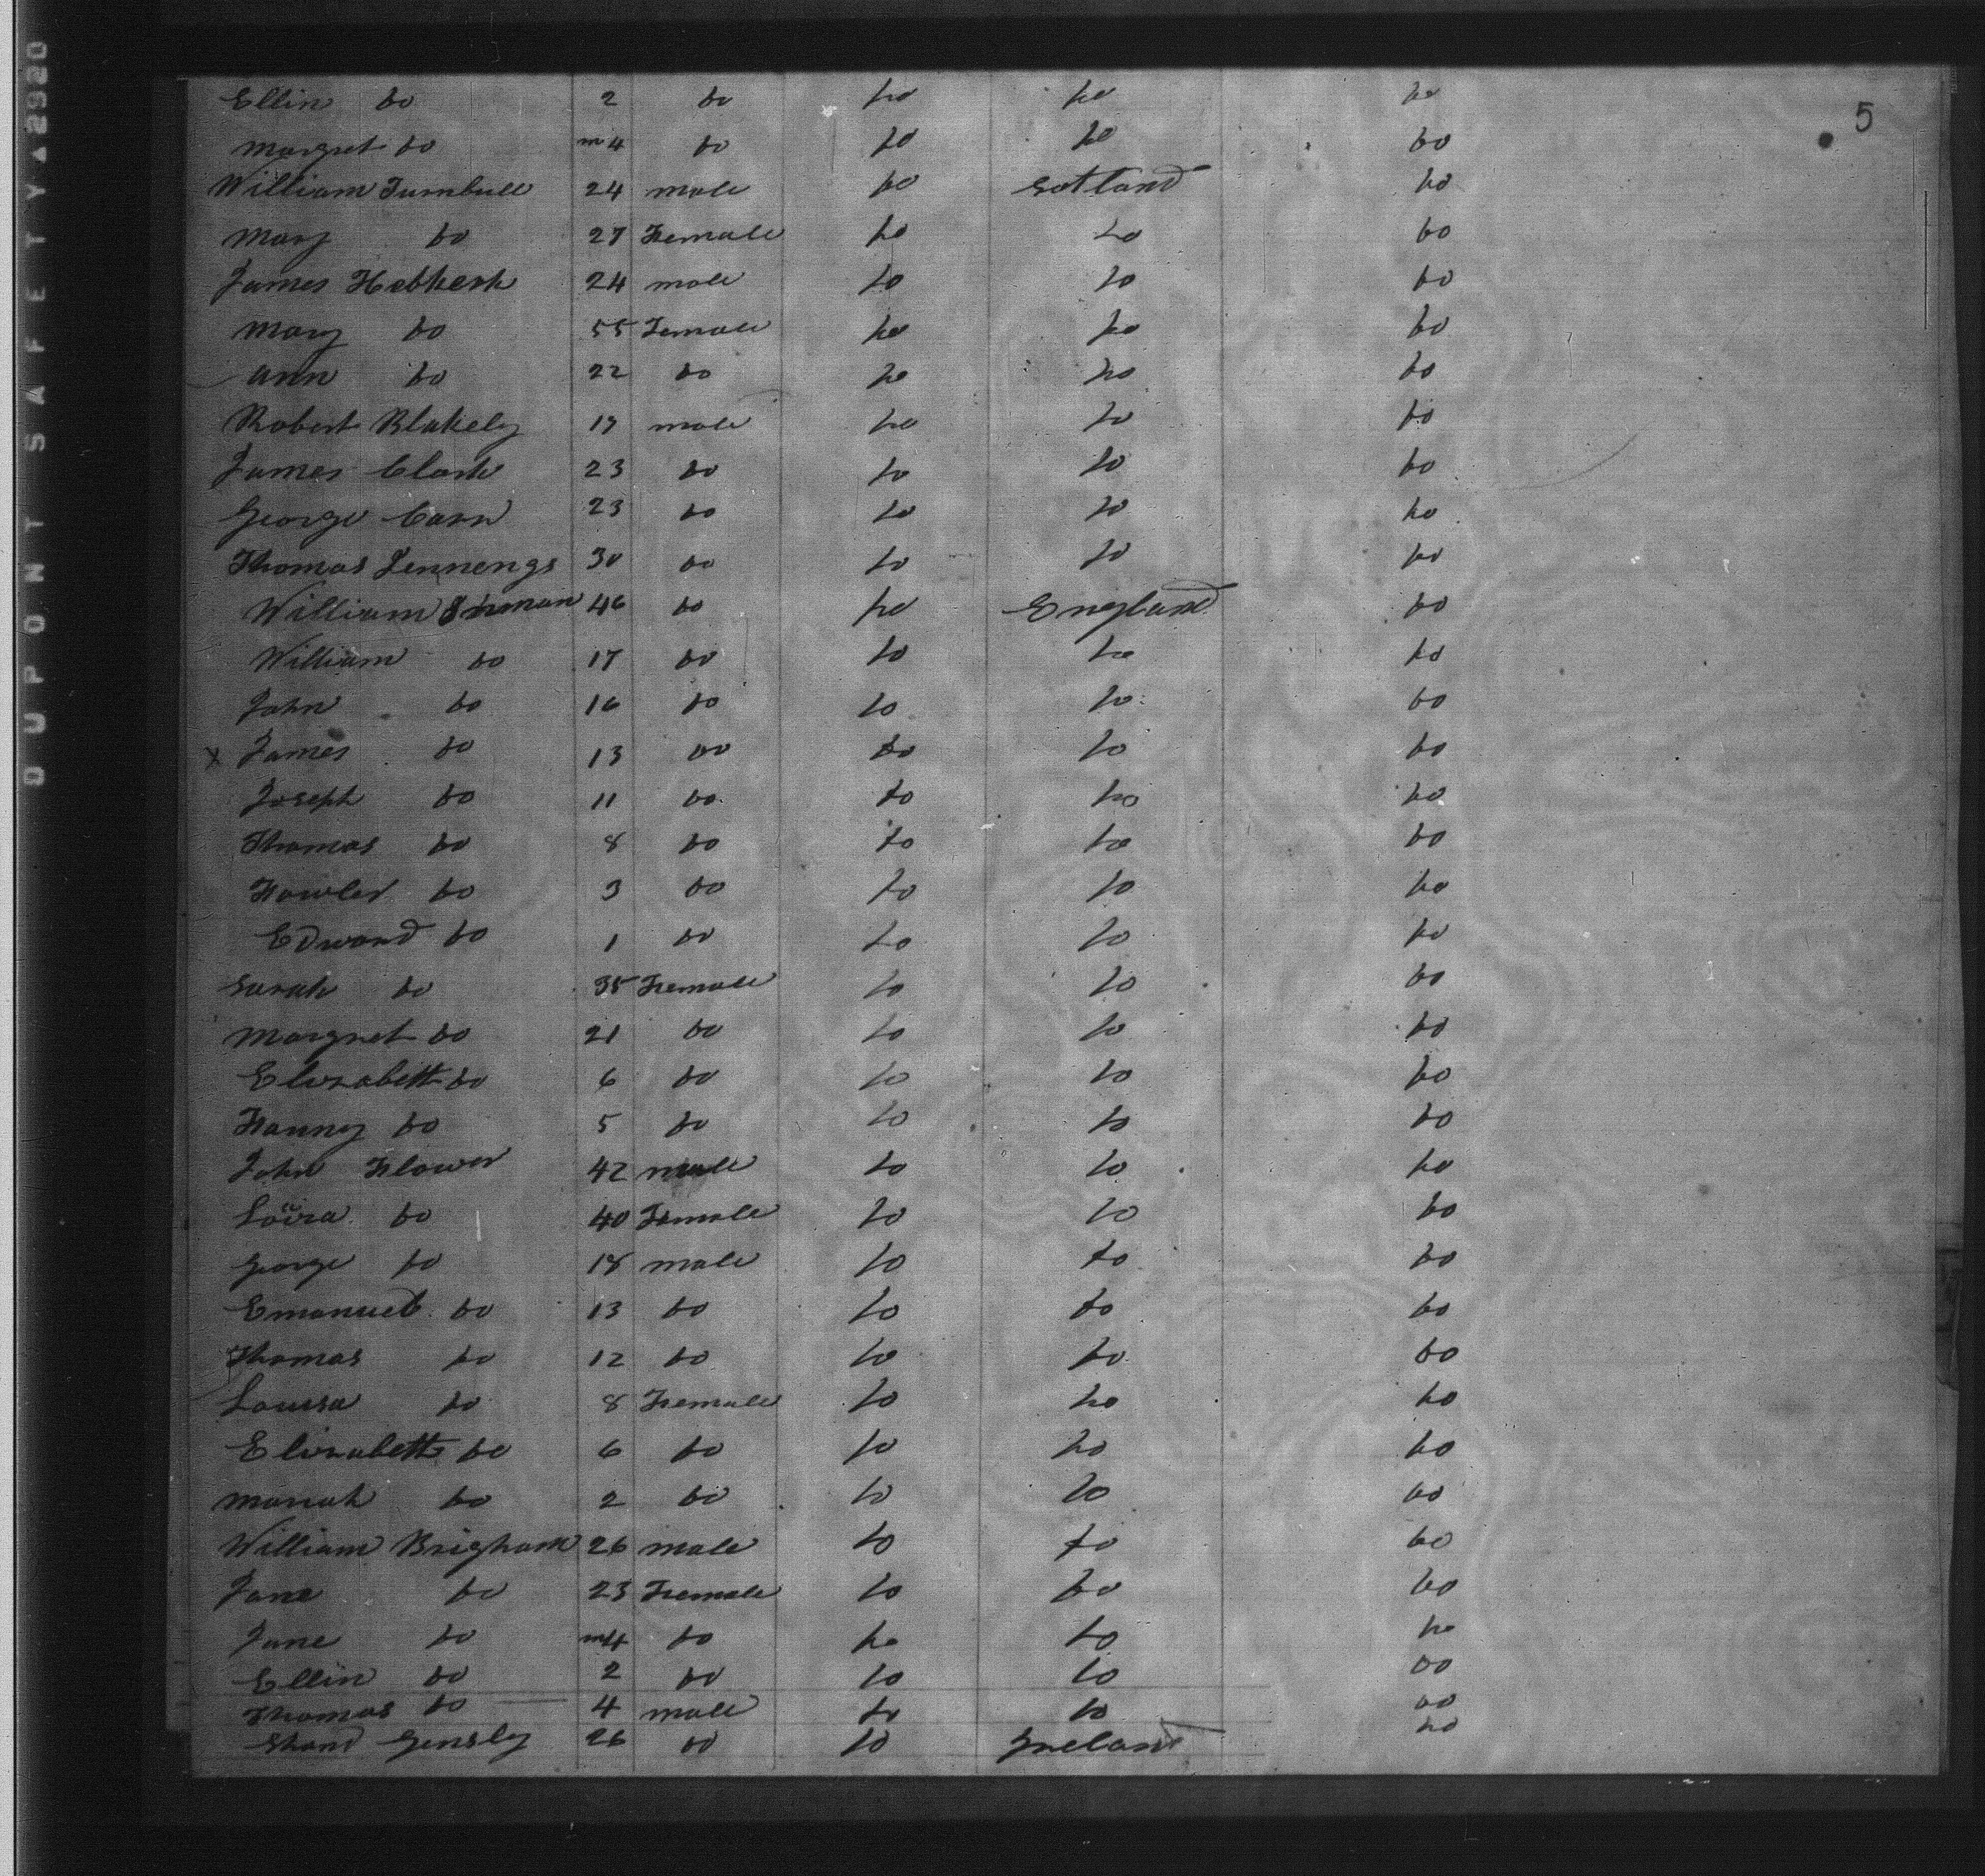 DUPONT SAFETY ▲ 2920
5
Ellin do 2 do do do do
Margret do m 4 do do do do
William Turnbull 24 male do Sotland do
Mary do 27 Female do do do
James Hobkerk 24 male do do do
Mary do 55 Female do do do
Ann do 22 do do do do
Robert Blakely 19 male do do do
James Clark 23 do do do do
George Carr 23 do do do do
Thomas Jennengs 30 do do do do
William Inman 46 do do England do
William do 17 do do do do
John do 16 do do do do
x James do 13 do do do do
Joseph do 11 do do do do
Thomas do 8 do do do do
Fowler do 3 do do do do
Edward do 1 do do do do
Sarah do 35 Female do do do
Margret do 21 do do do do
Elizabeth do 6 do do do do
Fanny do 5 do do do do
John Flower 42 male do do do
do 40 Female do do do
George do 18 male do do do
Emanuel do 13 do do do do
Thomas do 12 do do do do
Louisa do 8 Female do do do
Elizabeth do 6 do do do do
Mariah do 2 do do do do
William Brigham 26 male do do do
Jane do 23 Female do do do
Jane do m4 do do do do
Ellin do 2 do do do do
Thomas do 4 male do do do
26 do do Ireland do